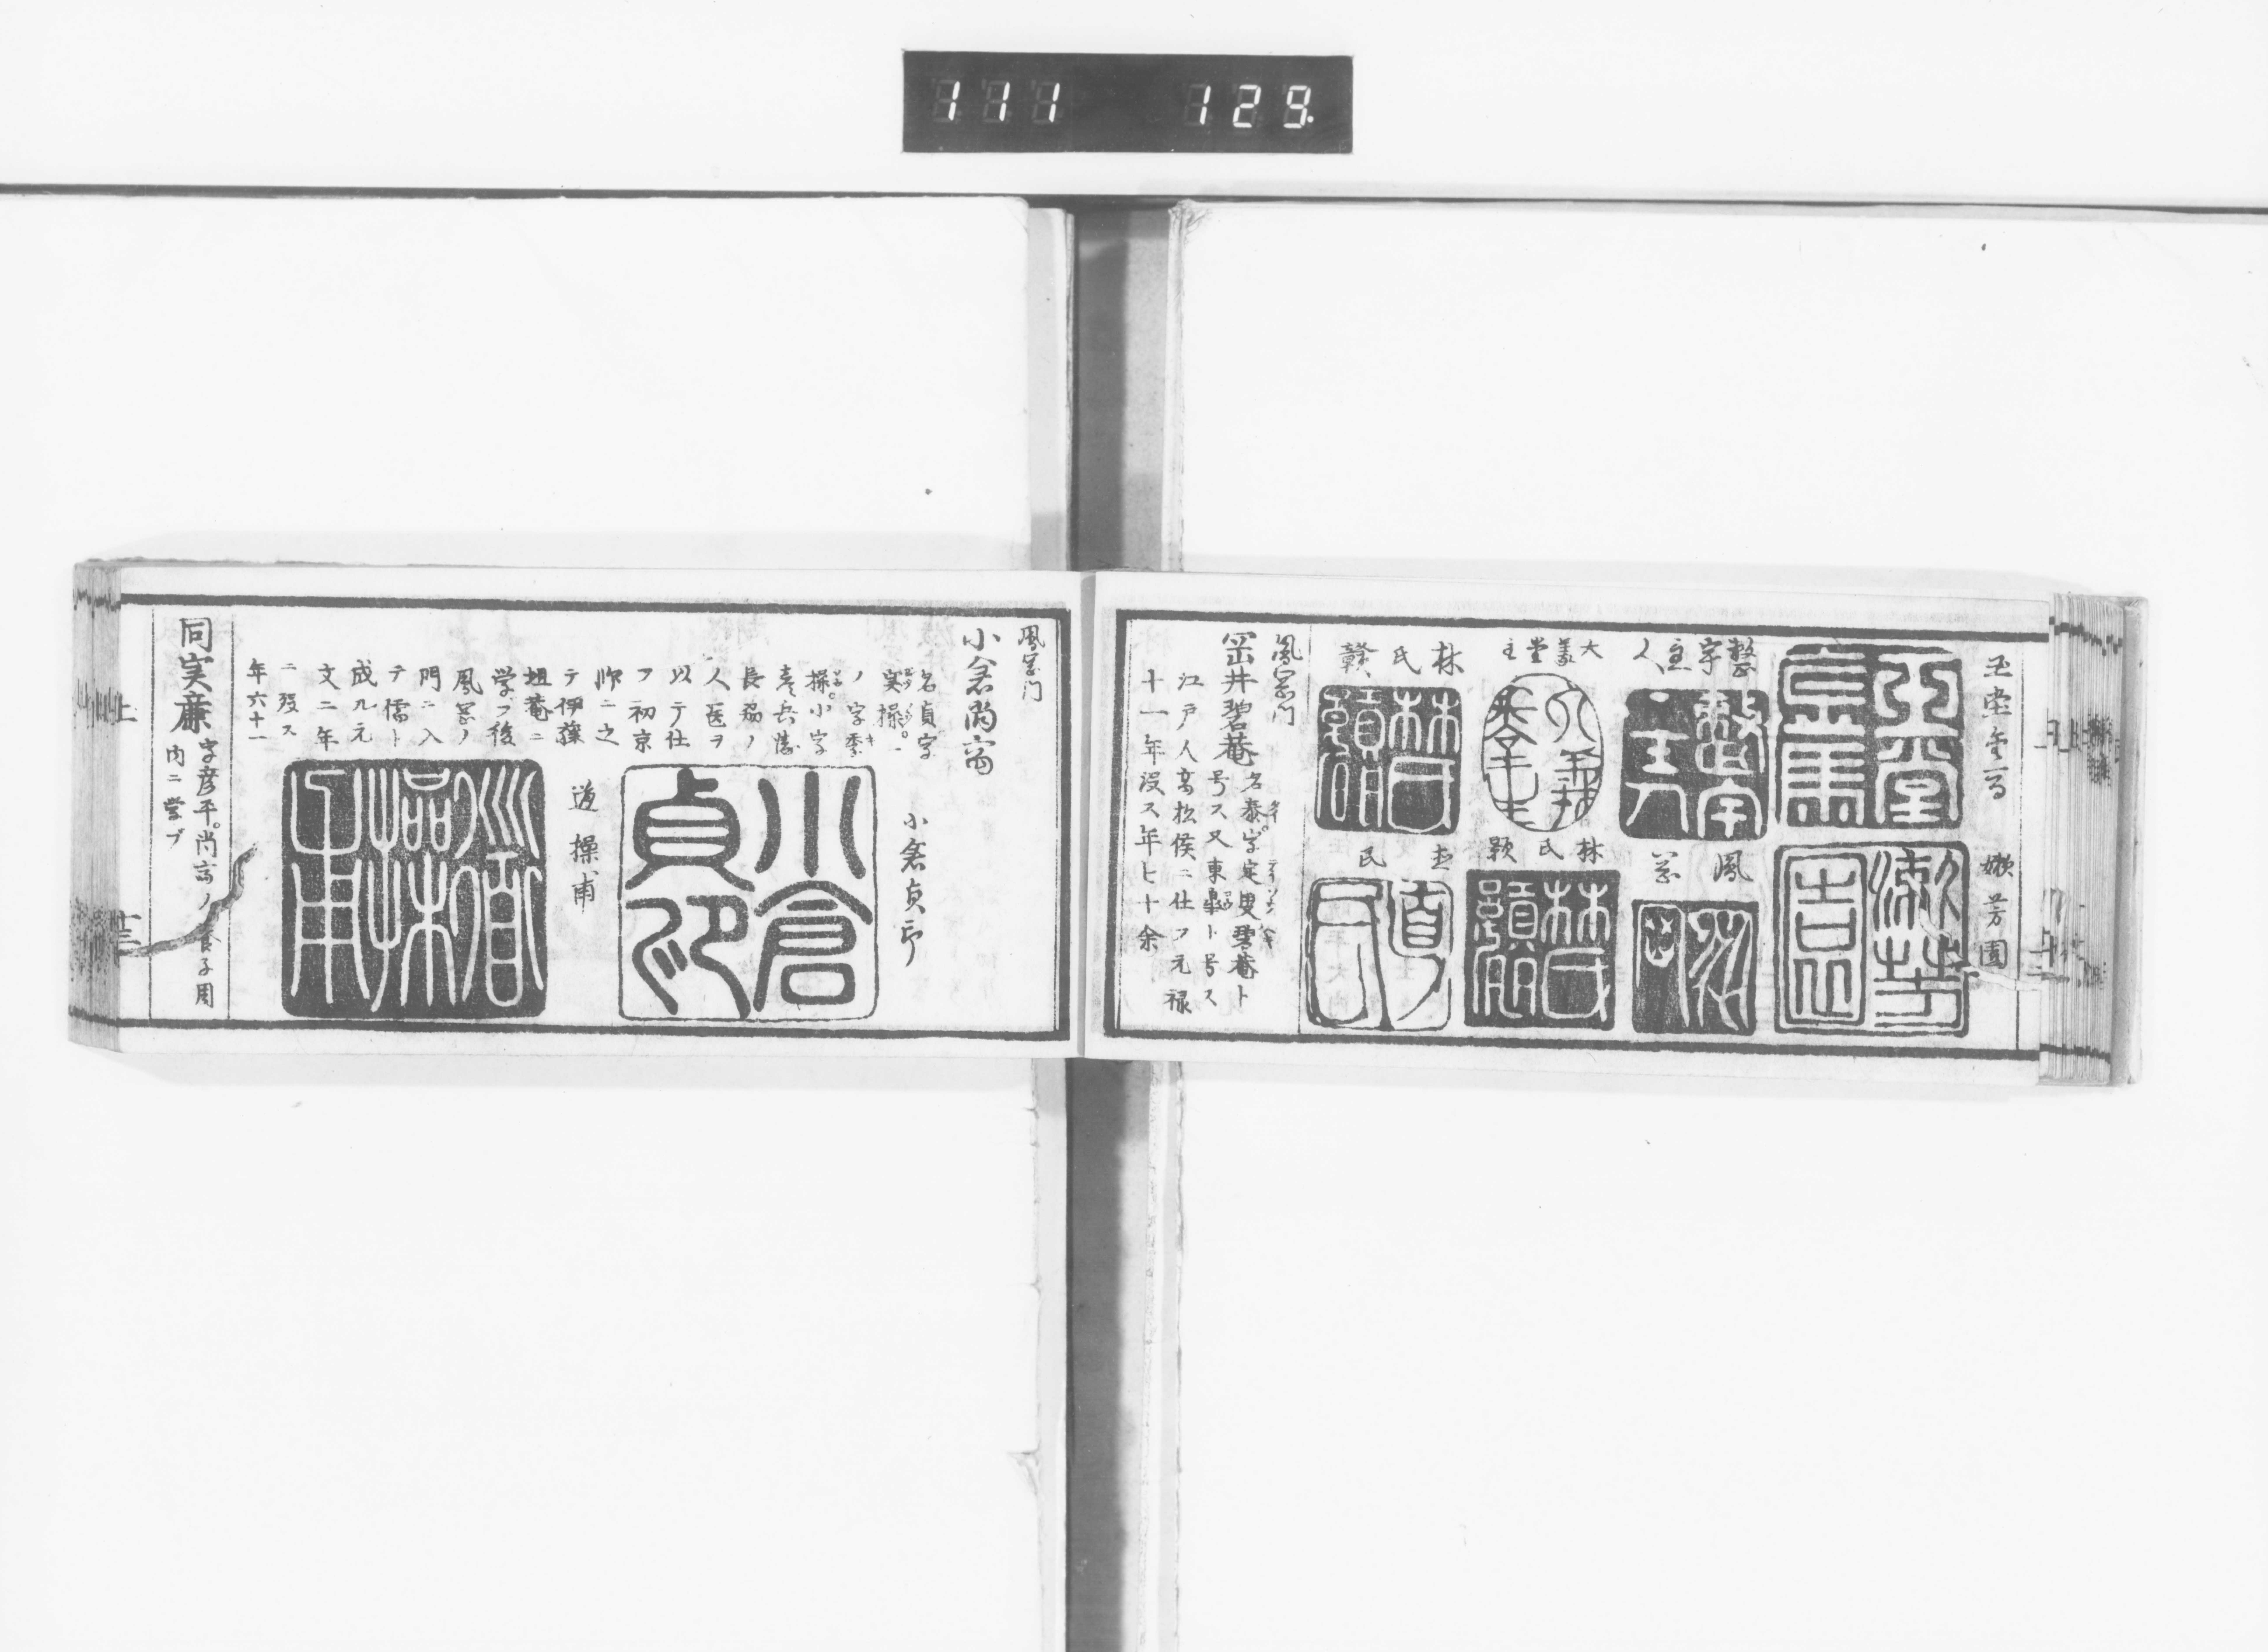 111 129.
玉堂金馬
嫩芳園
整宇主人
鳳岡
大義堂主
林氏
林氏
直民
鳳岡門
岡井碧菴 名泰字定叟碧菴ト
号ス又東皐ト号ス
江戸人高松侯ニ仕フ元禄
十一年没ス年七十余
鳳岡門
小倉尚斎
名貞字
実操。一
ノ字季
操。小字
彦兵衛
長州ノ
人医ヲ
以テ仕
フ初京
師ニ之
テ伊藤
坦菴ニ
学フ後
鳳岡ノ
門ニ入
テ儒ト
成ル元
文二年
ニ歿ス
年六十一
小倉貞印
小倉貞印
道操甫
同実廉 字彦平。尚斎ノ養子周
内ニ学ブ
上
十三